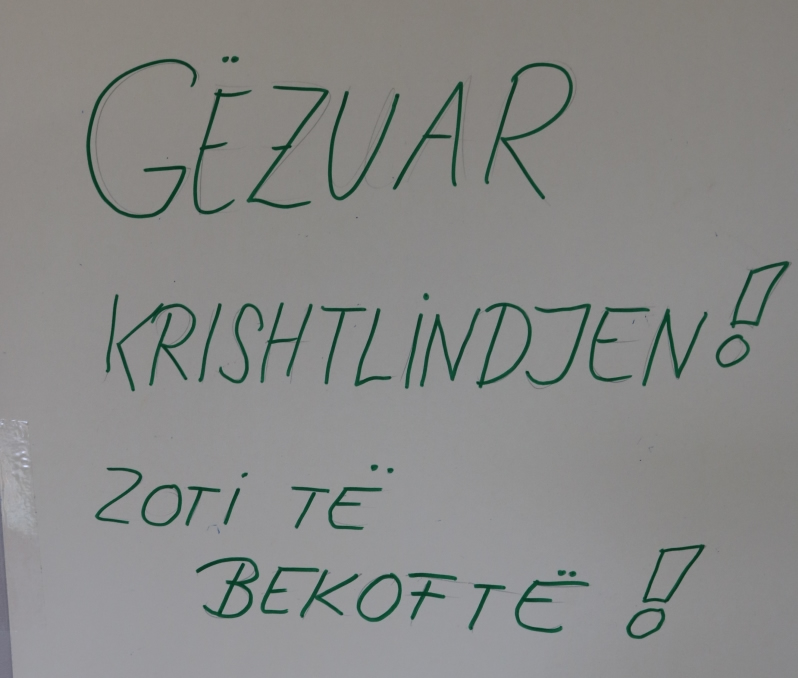 GËZUAR
KRISHTLİNDJEN!
ZOTİ TË
BEKOFTË!